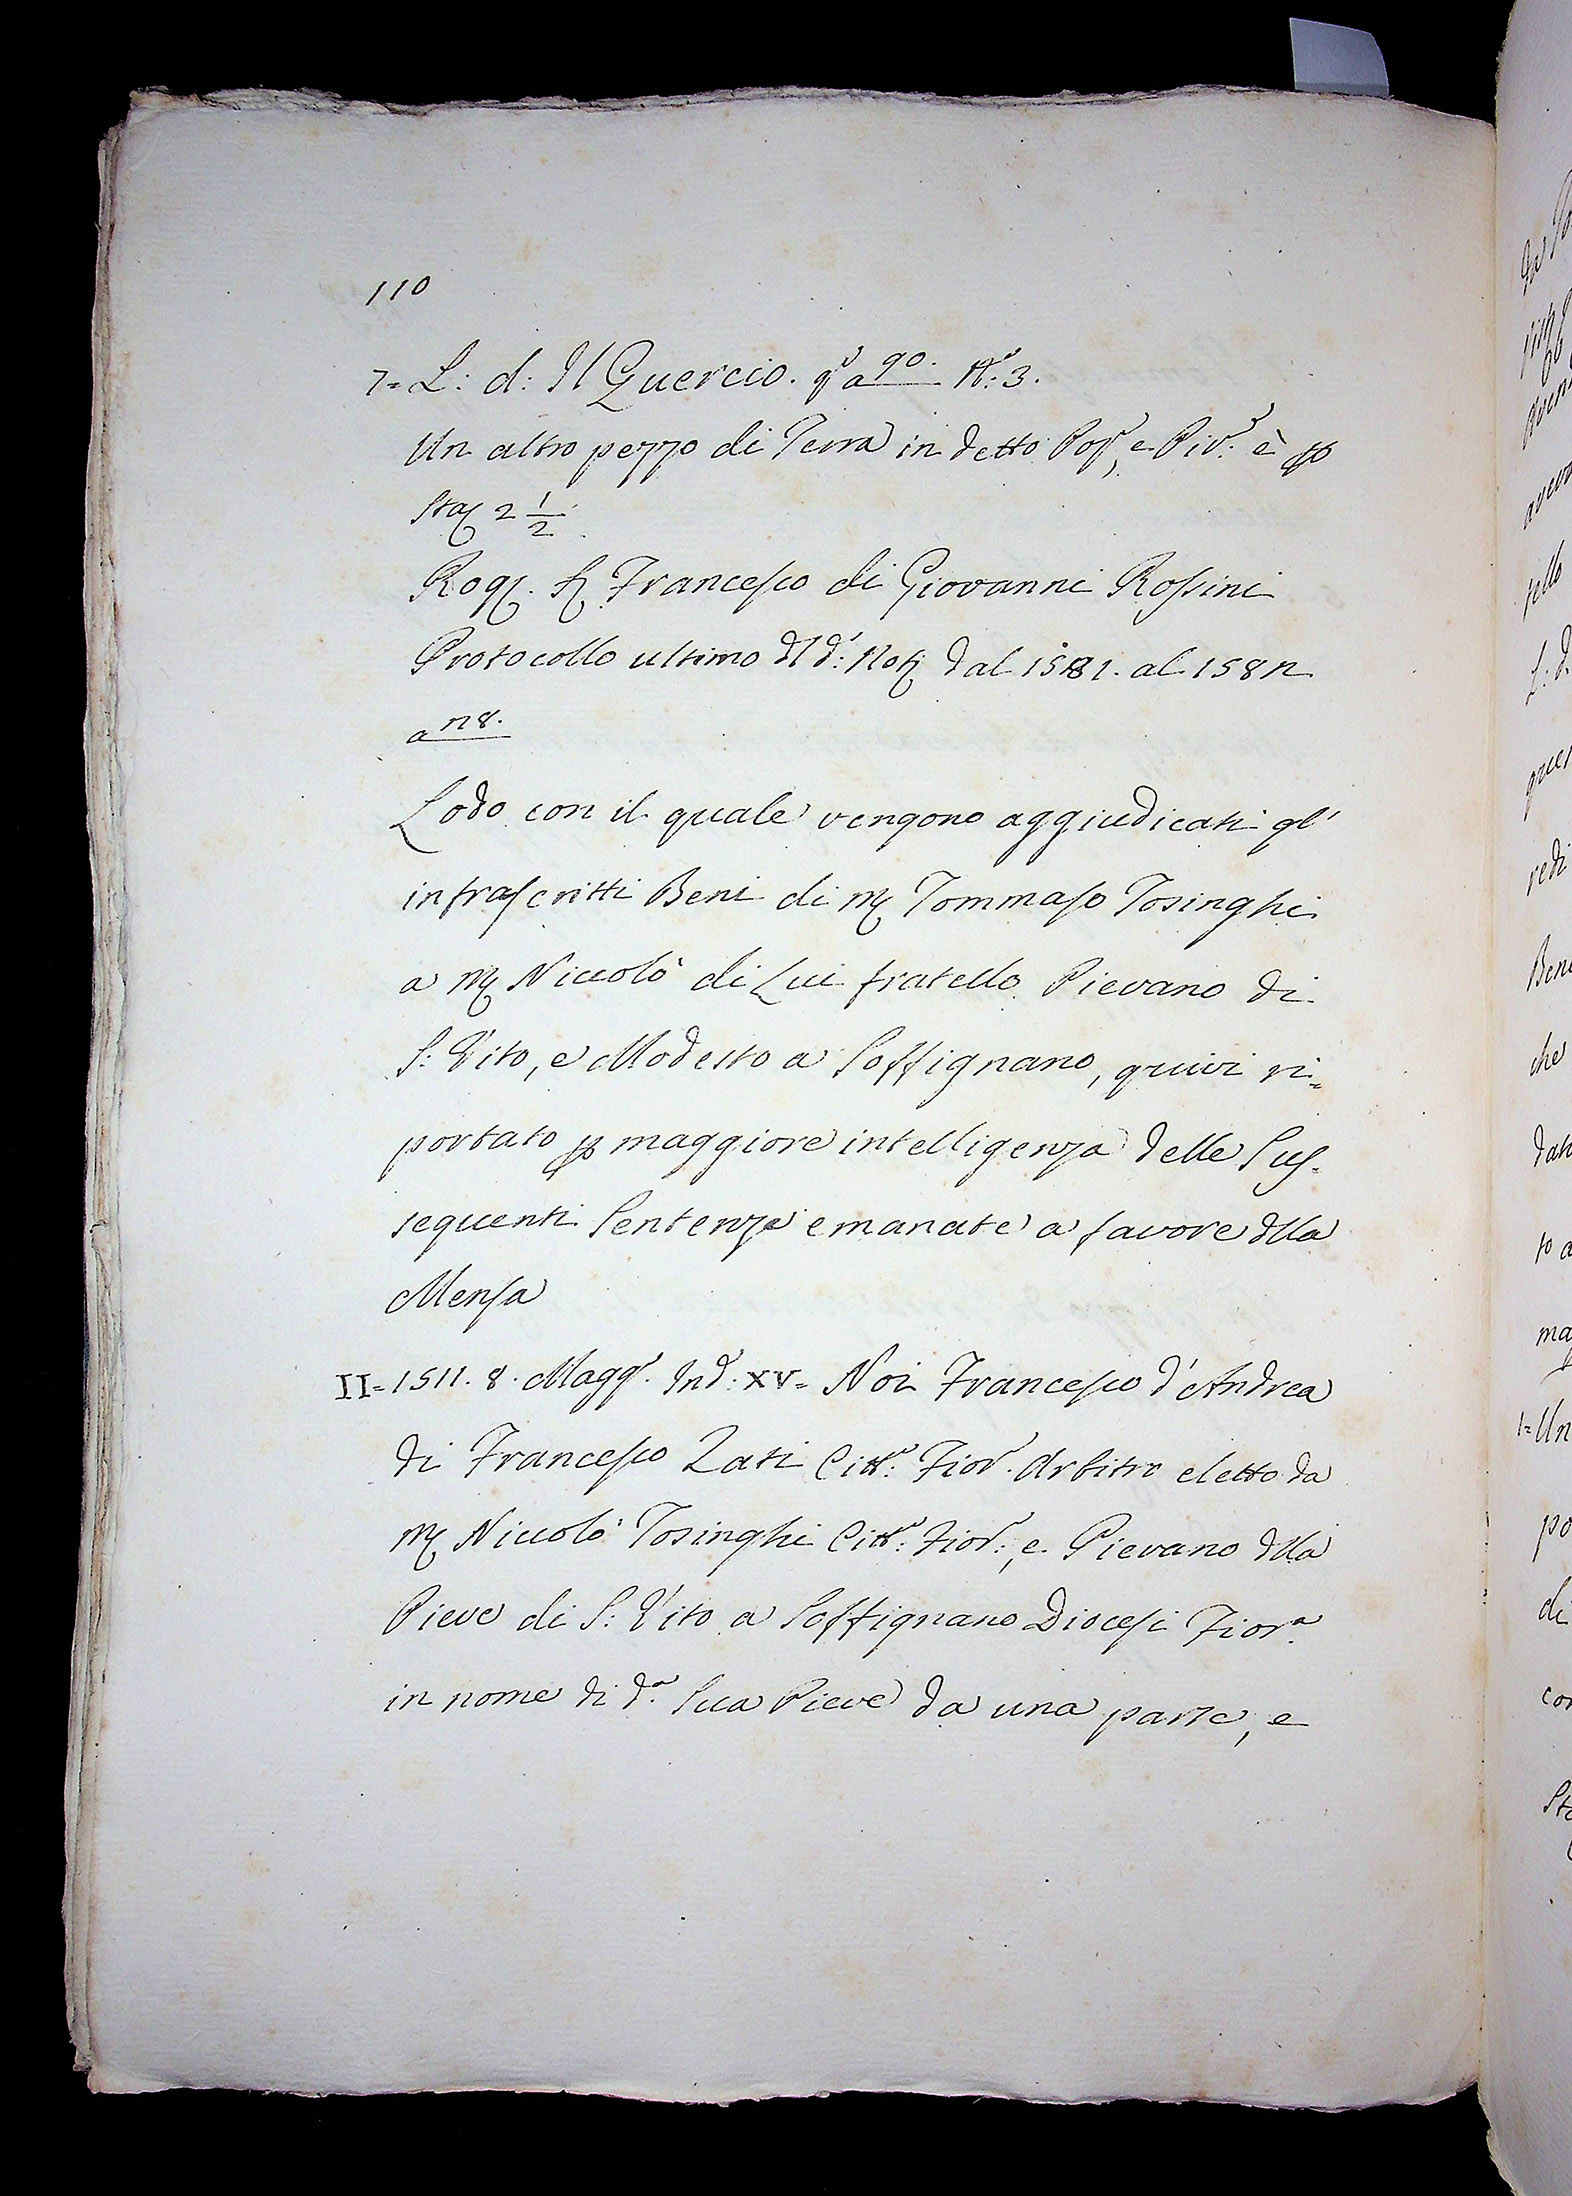 110
7= L: d: Il Quercio. qª a 90. Nº: 3.
Un altro pezzo di Terra in detto Popº, e Pivª: è p
Staj 2 1/2
Rogj. Sj Francesco di Giovanni Rossini
Protocollo ultimo dl dº: Notj dal 1581. al 158n
a n8.
Lodo con il quale vengono aggiudicati gl'
infrascritti Beni di Mj Tommaso Tosinghi
a Mj Niccolò di Lui fratello Pievano di
S: Vito, e Modesto a Soffignano, quivi ri=
portato p maggiore intelligenza delle Sus-
sequenti Sentenze emanate a favore dlla
Mensa
II= 1511. 8. Maggº. Indº: XV= Noi Francesco d'Andrea
di Francesco Zati Cittº: Fiorº. Arbitro eletto da
Mj Niccolò Tosinghi Cittº: Fiorº:, e Pievano dlla
Pieve di S: Vito a Soffignano Diocesi Fiorª.
in nome di dª. Sua Pieve da una parte, e